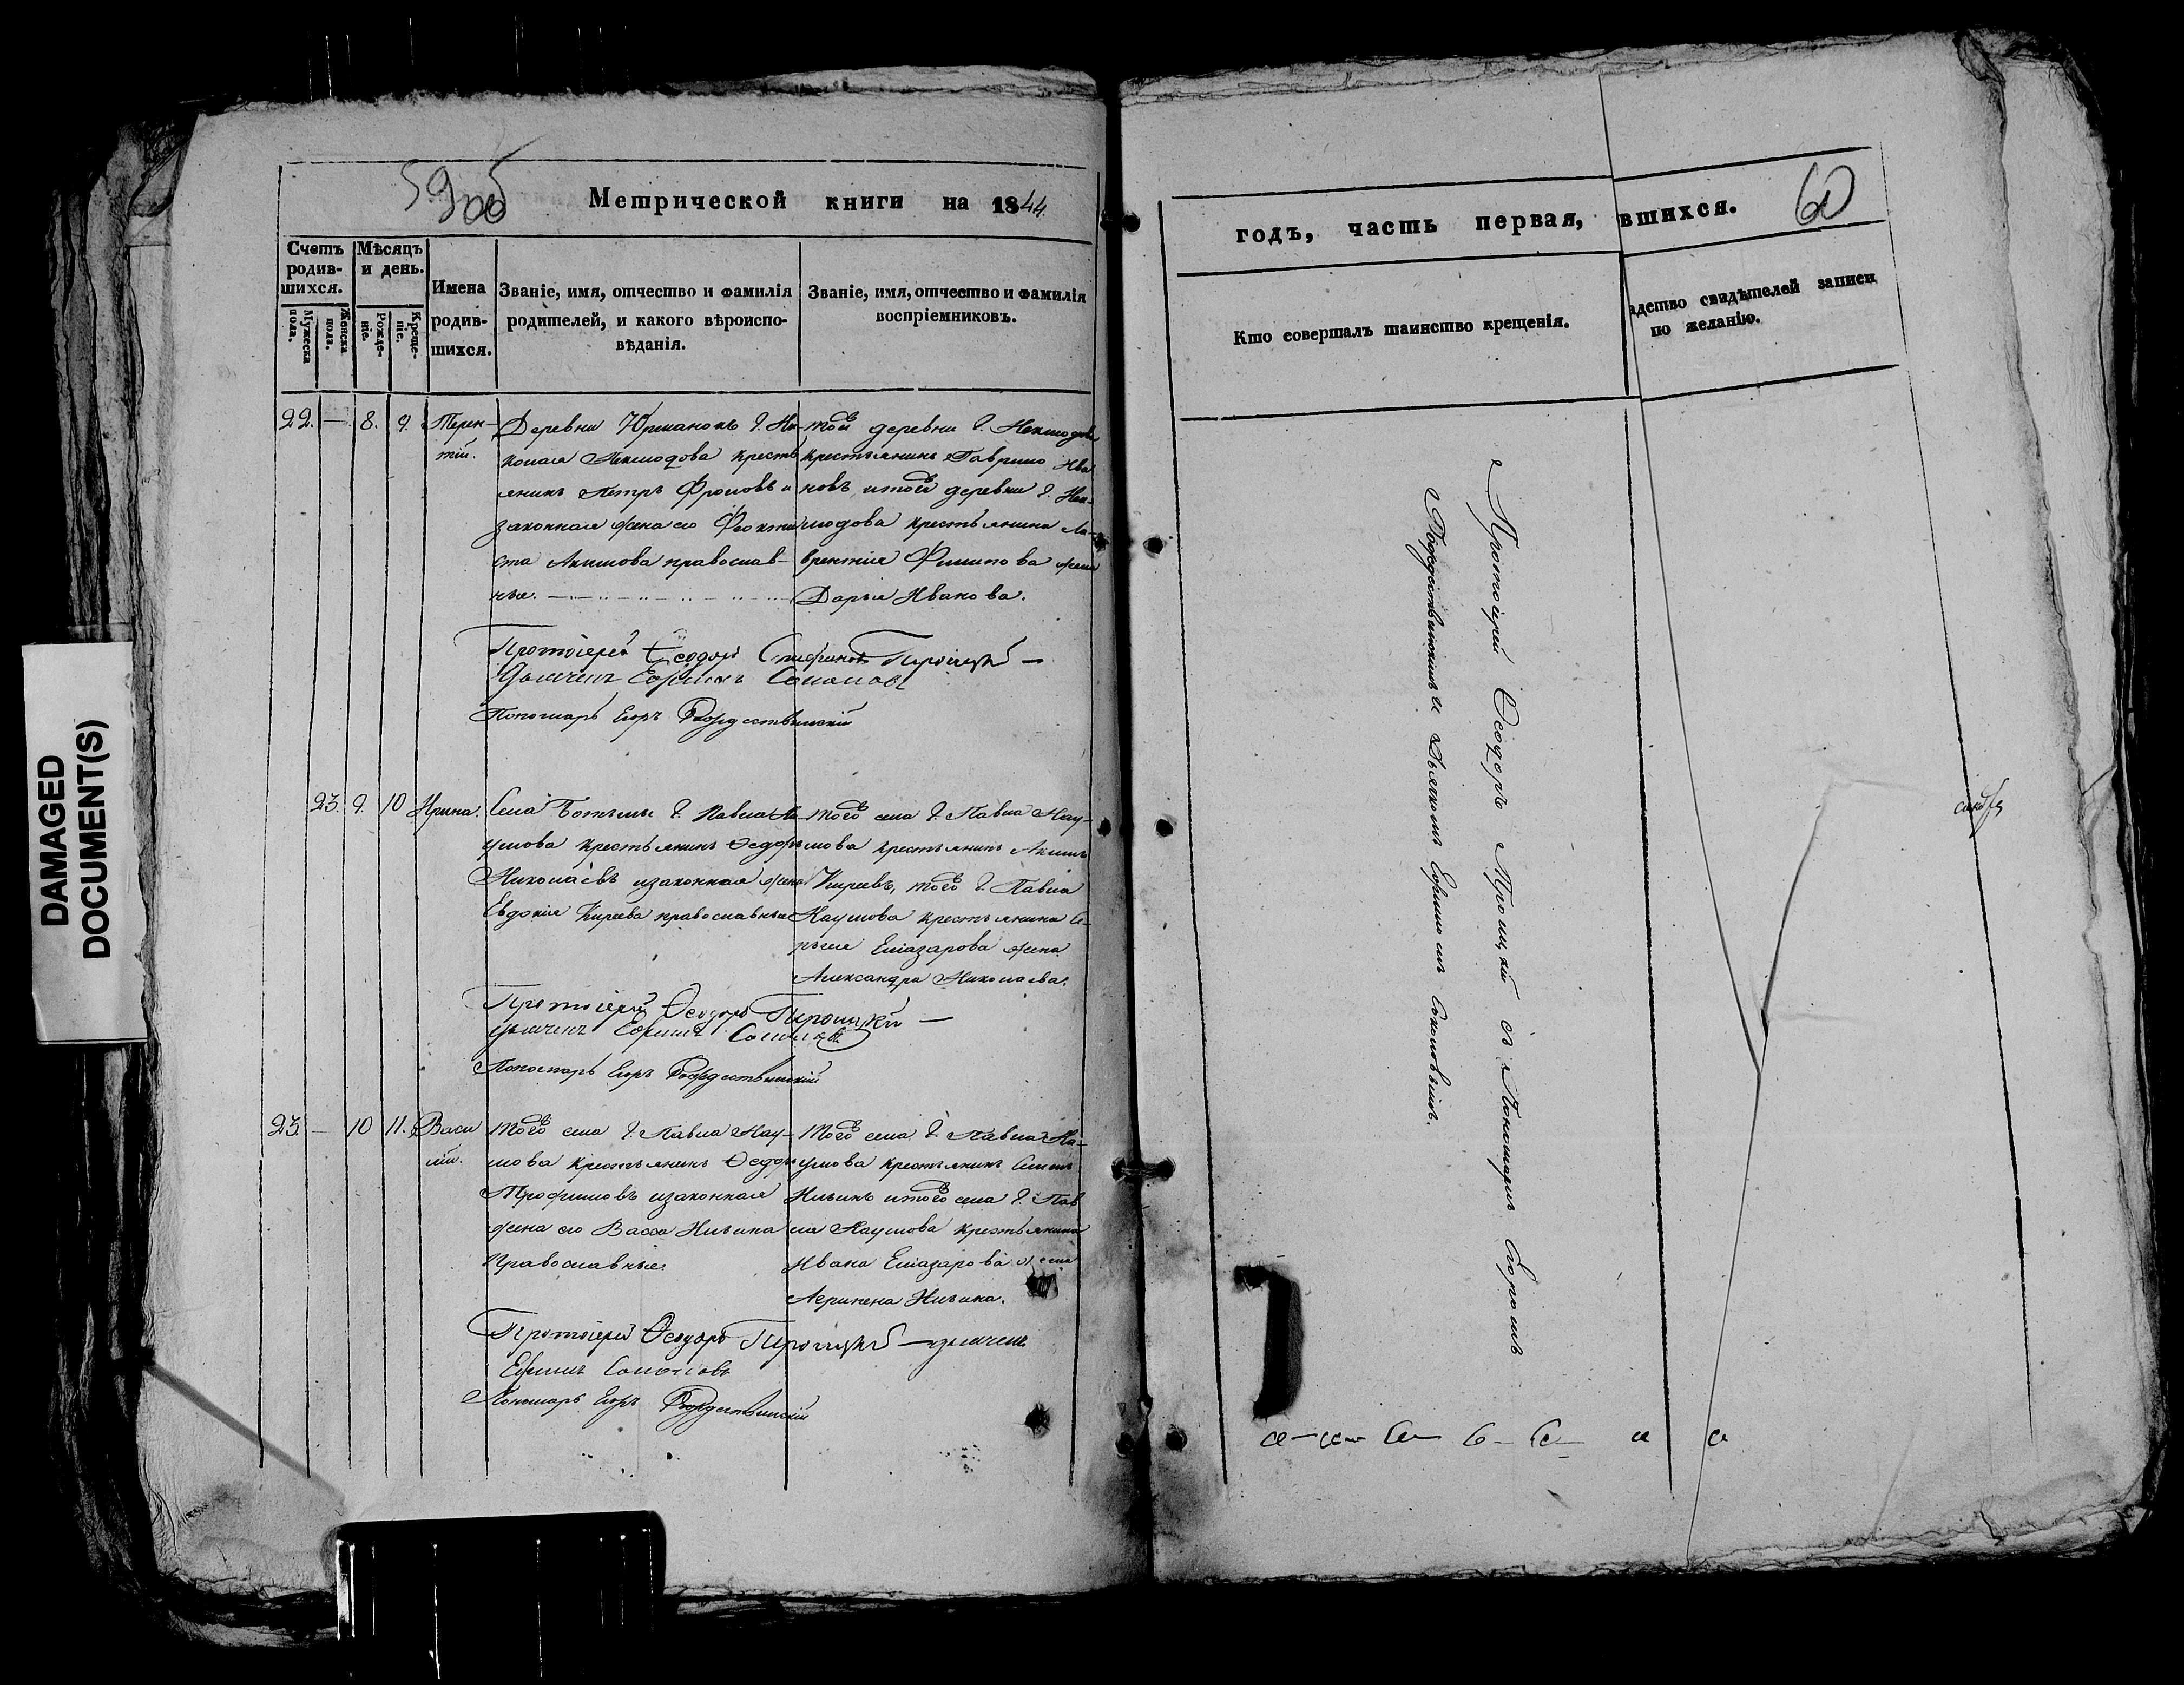 59об
Метрической книги на 1844
Счетъ родив-шихся.
Мужеска пола.
Женска пола.
Мѣсяцъ и день.
Рожде-ніе.
Креще-ніе.
Имена родив-шихся.
Званіе, имя, отчество и фамилія родителей, и какого вѣроиспо-вѣданія.
Званіе, имя, отчество и фамилія воспріемниковъ.
22. — 8. 9. Терен-тій.
Деревни Юрманокъ Г. Ни-
колая Неклюдова кресть
янинъ Петръ Фроловъ и
законная жена его Феокти
ста Акимова православ-
ныя.
той деревни Г. Неклюдова
крестьянинъ Гаврило Ива
новъ и той деревни Г. Нек-
людова крестьянина Ла-
врентія Филипова жена
Дарья Иванова.
Протоіерей Ѳеодоръ Троицкій
Дьячекъ Ефимъ Соколовъ
Пономарь Егоръ Рождественскій
23. 9. 10 Ирина.
Села Ботьмы Г. Павла На-
умова крестьянинъ Ѳедоръ
Николаевъ и законная жена
Евдокія Киреева православные
того села Г. Павла Нау-
мова крестьянинъ Акимъ
Киреевъ, того Г. Павла
Наумова крестьянина
Елиазарова жена
Александра Николаева.
Протоіерей Ѳеодоръ Троицкій
Дьячекъ Ефимъ Соколовъ
Пономарь Егоръ Рождественскій
23 — 10 11. Васи лій.
Того села Г. Павла Нау-
мова крестьянинъ Ѳедоръ
Трофимовъ и законная
жена его Васса Ильина
Православные.
Того села Г. Павла На-
умова крестьянинъ
Ильинъ и того села Г. Пав
ла Наумова крестьянина
Ивана Елиазарова жена
Агрипена Ильина.
Протоіерей Ѳеодоръ Троицкій — дьячекъ
Ефимъ Соколовъ
Пономарь Егоръ Рождественскій
годъ, часть первая,
вшихся.
60
Кто совершалъ таинство крещенія.
адство свидѣтелей записи по желанію.
Протоіерей Ѳеодоръ Троицкій съ Пономаремъ Егоромъ
Рождественскимъ и Дьячкомъ Ефимомъ Соколовымъ.
DAMAGED
DOCUMENT(S)